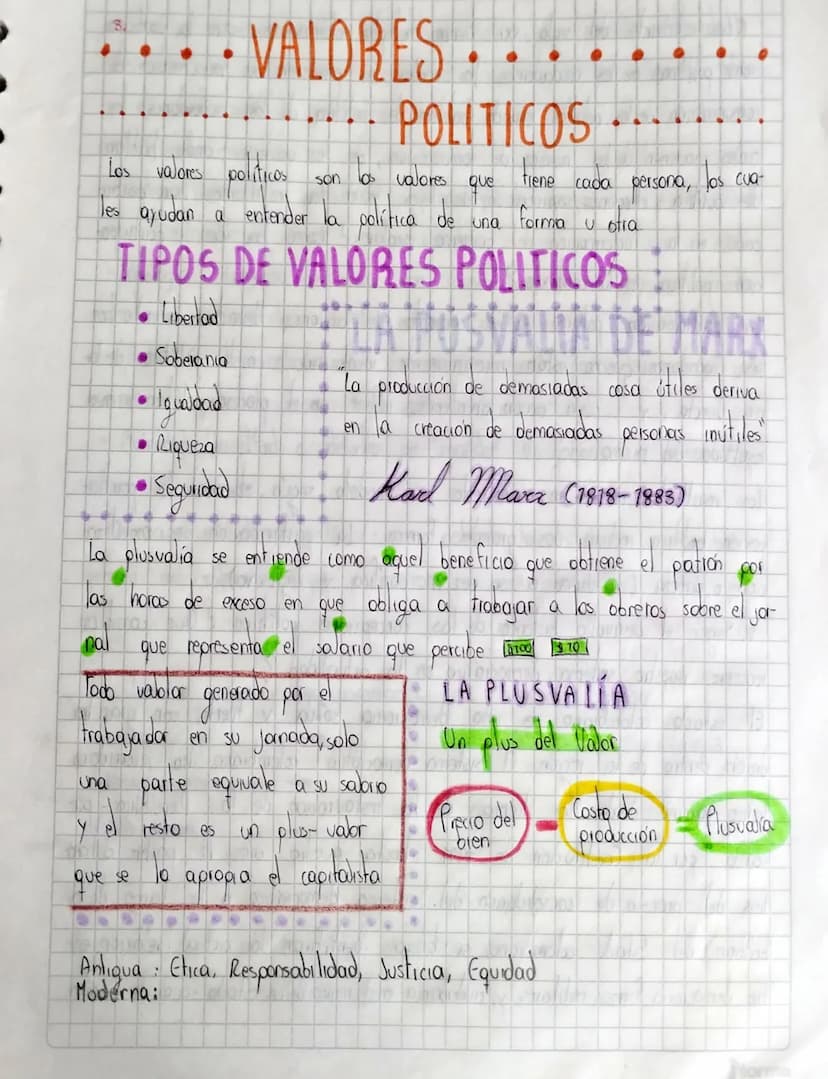 3.
VALORES
POLITICOS
Los valores políticos son los valores que tiene cada persona, los cua-
les ayudan a entender la política de una forma u otra
TIPOS DE VALORES POLITICOS
• Libertad
• Soberania
• Igualdad
• Riqueza
• Seguridad
LA PUSVALIA DE MARX
"La producción de demasiadas cosa útiles deriva
en la creación de demasiadas personas inútiles"
Karl Marx (1818-1883)
La plusvalía se entiende como aquel beneficio que obtiene el patrón por
las horas de exceso en que obliga a trabajar a los obreros sobre el jor-
nal que representa el salario que percibe $100 $70
Todo valolar generado por el
trabajador en su jornada, solo
una parte equivale a su salario
y el resto es un plus-valor
que se lo apropia el capitalista
LA PLUSVALÍA
Un plus del Valor
Precio del
bien
-
Costo de
producción
=
Plusvalía
Antigua: Etica, Responsabilidad, Justicia, Equidad
Moderna: